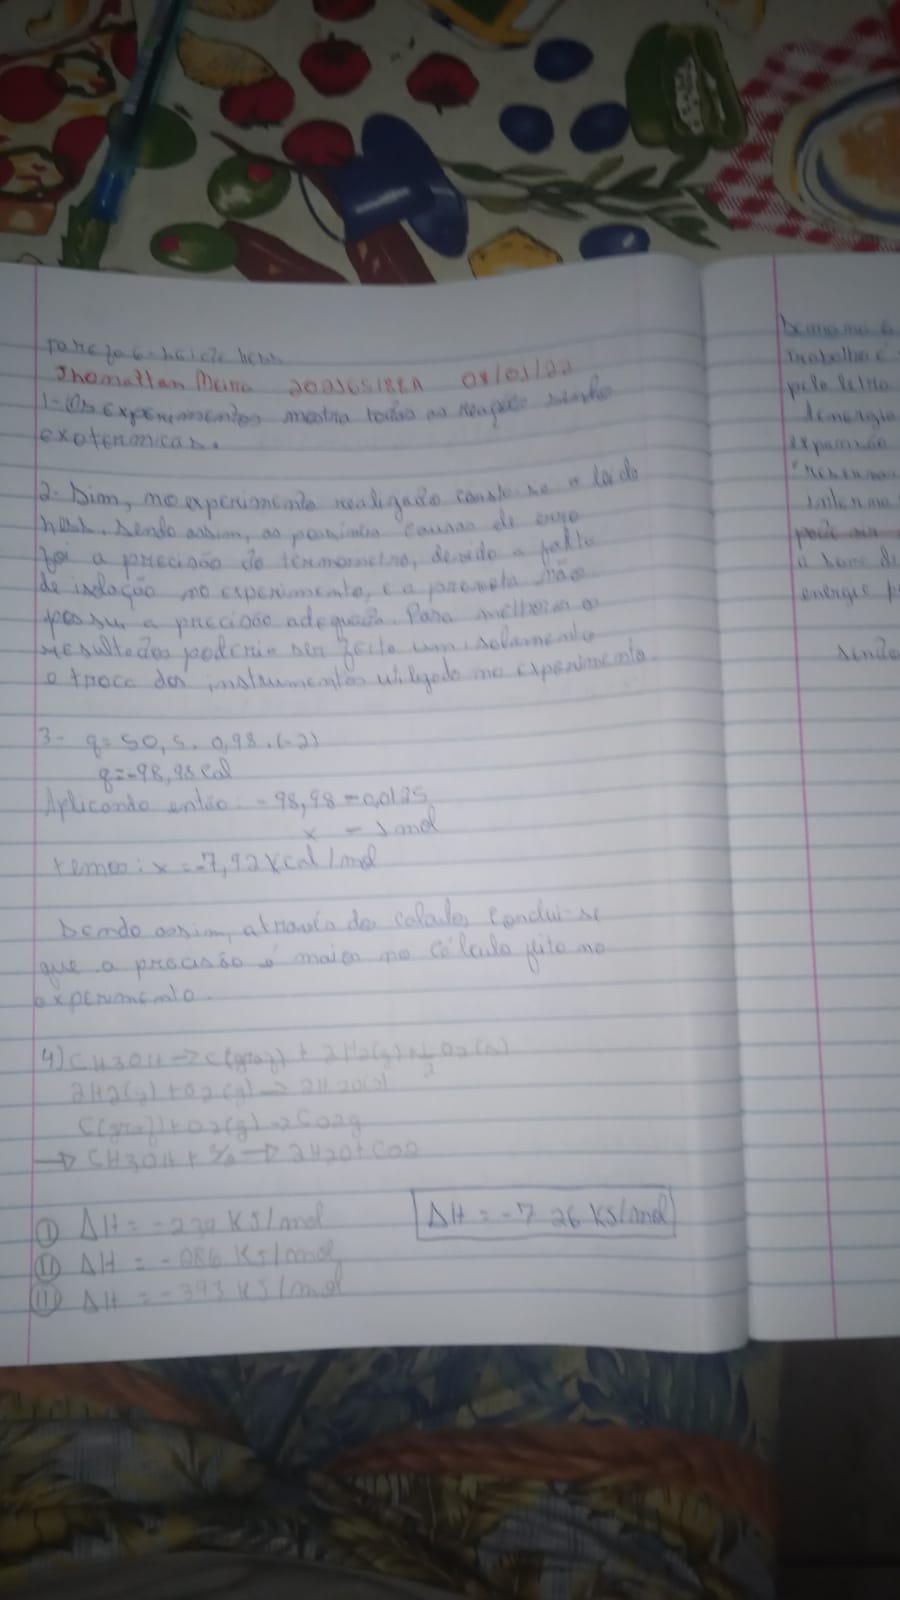 Tarefa 6 - Lei de Hess
Jhonattan Meira 202165181A 08/01/22
1- Os experimentos mostra todas as reações sendo
exotermicas.
2- Sim, no experimento realizado consta-se a lei de
hess. Sendo assim, as possíveis causas de erro
foi a precisão do termometro, devido a falta
de isolação no experimento, e a proveta não
possui a precisão adequada. Para melhorar os
resultados poderia ser feito um isolamento
e troca dos instrumentos utilizado no experimento.
3- q = 50,5 . 0,98 . (-2)
q = -98,98 cal
Aplicando então: -98,98 - 0,0125
x - 1 mol
temos: x = -7,92 Kcal/mol
Sendo assim, através dos calculos conclui-se
que a precisão é maior no cálculo feito no
experimento.
4) CH3OH → C(graf) + 2H2(g) + 1/2 O2(g)
2H2(g) + O2(g) → 2H2O(l)
C(graf) + O2(g) → CO2g
→ CH3OH + → 2H2O + CO2
ΔH = -7 26 KJ/mol
I ΔH = KJ/mol
II ΔH = KJ/mol
III ΔH = -393 KJ/mol
trabalho é
pelo
energia
expansão
interna
pode ser
energia
sendo